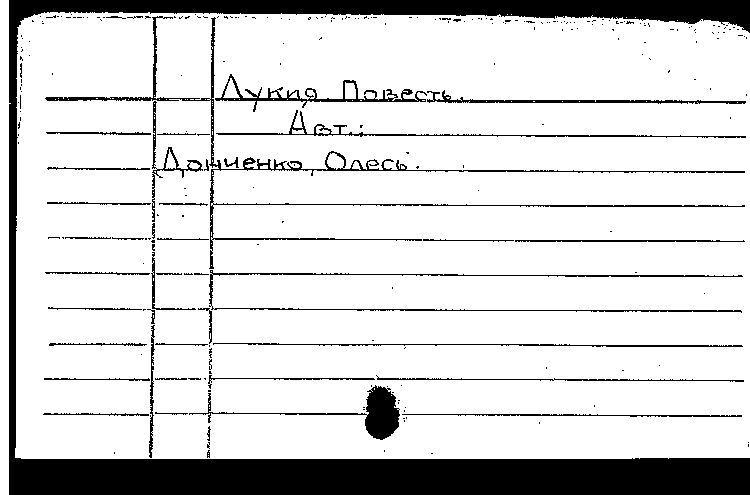 Лукия Повесть.
Авт.:
Донченко, Олесь.